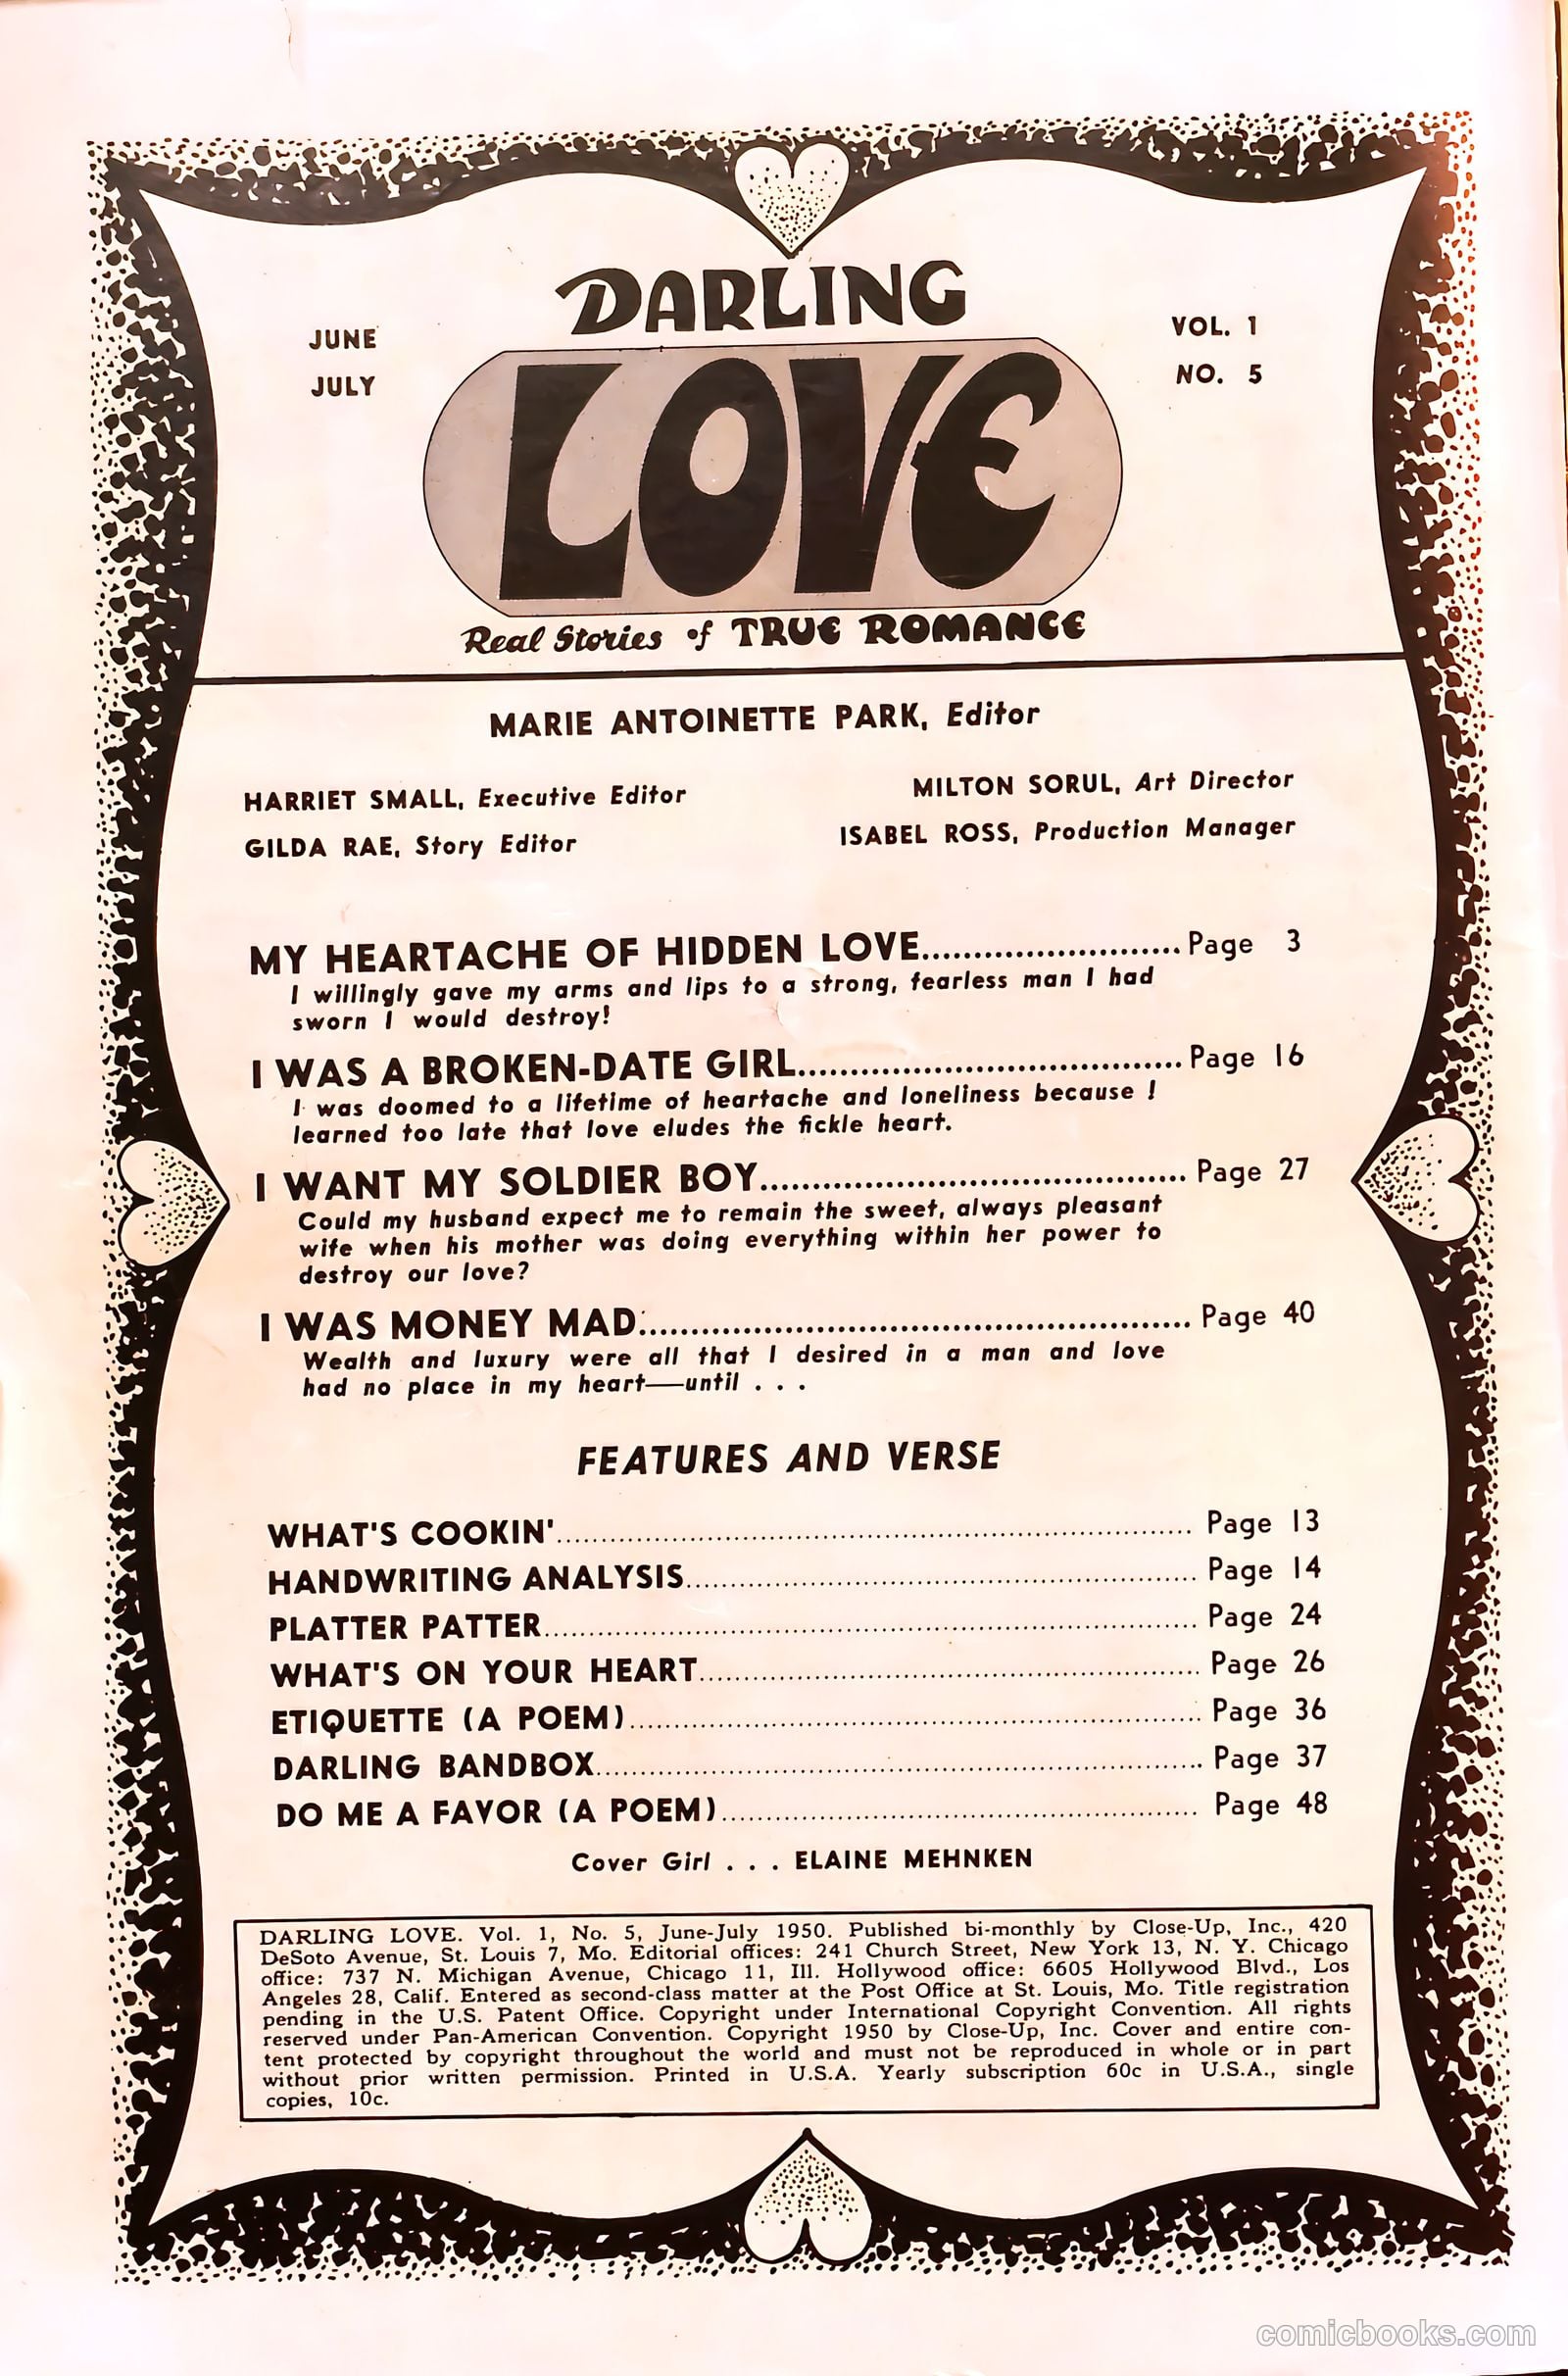 DARLING
JUNE
JULY
VOL. 1
NO. 5
LOVE
Real Stories of TRUE ROMANCE
MARIE ANTOINETTE PARK, Editor
HARRIET SMALL, Executive Editor
MILTON SORUL, Art Director
GILDA RAE, Story Editor
ISABEL ROSS, Production Manager
MY HEARTACHE OF HIDDEN LOVE.........................Page 3
I willingly gave my arms and lips to a strong, fearless man I had
sworn I would destroy!
I WAS A BROKEN-DATE GIRL.....................................Page 16
I was doomed to a lifetime of heartache and loneliness because !
learned too late that love eludes the fickle heart.
I WANT MY SOLDIER BOY.........................................Page 27
Could my husband expect me to remain the sweet, always pleasant
wife when his mother was doing everything within her power to
destroy our love?
I WAS MONEY MAD.....................................................Page 40
Wealth and luxury were all that I desired in a man and love
had no place in my heart—until . . .
FEATURES AND VERSE
WHAT'S COOKIN'........................................................................Page 13
HANDWRITING ANALYSIS..........................................................Page 14
PLATTER PATTER.........................................................................Page 24
WHAT'S ON YOUR HEART........................................................Page 26
ETIQUETTE (A POEM)................................................................Page 36
DARLING BANDBOX....................................................................Page 37
DO ME A FAVOR (A POEM).....................................................Page 48
Cover Girl . . . ELAINE MEHNKEN
DARLING LOVE. Vol. 1, No. 5, June-July 1950. Published bi-monthly by Close-Up, Inc., 420
DeSoto Avenue, St. Louis 7, Mo. Editorial offices: 241 Church Street, New York 13, N. Y. Chicago
office: 737 N. Michigan Avenue, Chicago 11, Ill. Hollywood office: 6605 Hollywood Blvd., Los
Angeles 28, Calif. Entered as second-class matter at the Post Office at St. Louis, Mo. Title registration
pending in the U.S. Patent Office. Copyright under International Copyright Convention. All rights
reserved under Pan-American Convention. Copyright 1950 by Close-Up, Inc. Cover and entire con-
tent protected by copyright throughout the world and must not be reproduced in whole or in part
without prior written permission. Printed in U.S.A. Yearly subscription 60c in U.S.A., single
copies, 10c.
comicbooks.com